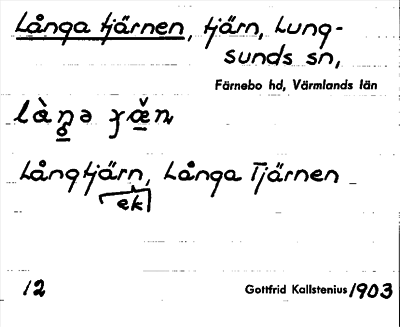 Långa tjärnen, tjärn, Lung-
sunds sn,
Färnebo hd, Värmlands län
Långtjärn, Långa Tjärnen
ek
12
Gottfrid Kallstenius 1903